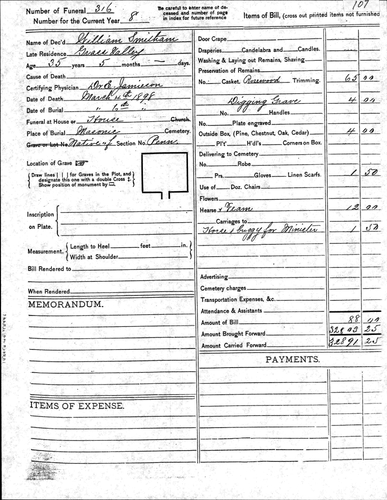 107
Number of Funeral 316
Number for the Current Year 8
Be careful to enter name of deceased and number of page in index for future reference
Items of Bill, (cross out printed items not furnished
Name of Dec'd William Smitham
Late Residence Grass Valley
Age 35 years 5 months - days
Cause of Death
Certifying Physician Dr. C. Jameson
Date of Death March 4th 1898
Date of Burial " 6th "
Funeral at House or House Church
Place of Burial Masonic Cemetery.
Grave or Lot No. Native of Section No. Penn.
Location of Grave
Draw lines [ ] for Graves in the Plot, and designate this one with a double Cross
Show position of monument by
Inscription on Plate.
Measurement, Length to Heel feet in.
Width at Shoulder
Bill Rendered to
When Rendered
MEMORANDUM.
ITEMS OF EXPENSE.
Door Crape
Draperies Candelabra and Candles.
Washing & Laying out Remains, Shaving
Preservation of Remains
No. Casket, Rosewood Trimming. 65 00
Digging Grave 4 00
No. Handles
Plate engraved
Outside Box, (Pine, Chestnut, Oak, Cedar) 4 00
P'I'V H'dl's Corners on Box.
Delivering to Cemetery
No. Robe
Prs. Gloves Linen Scarfs. 1 50
Use of Doz. Chairs
Flowers
Hearse & Team 12 00
Carriages to
Horse & Buggy for Minister 1 50
Advertising
Cemetery charges
Transportation Expenses, &c.
Attendance & Assistants
Amount of Bill 88 00
Amount Brought Forward 32803 25
Amount Carried Forward 32891 25
PAYMENTS.